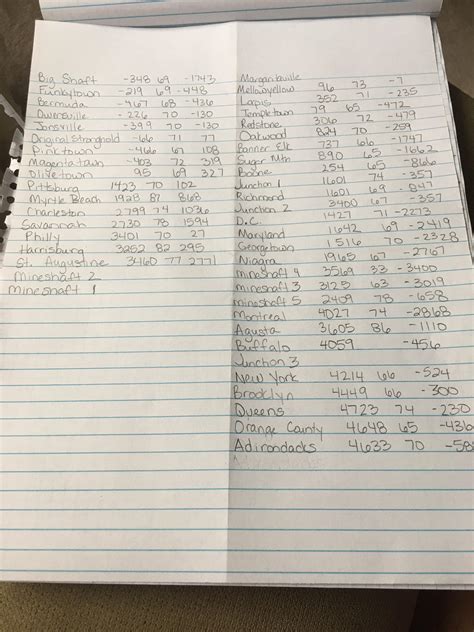 Big Shaft -348 69 -1743
Funkytown -219 69 -448
Bermuda -467 68 -436
Owensville -226 70 -130
Jonsville -399 70 -130
Original Stronghold -66 71 77
Pinktown -466 67 108
Magenta town -403 72 319
Olivetown 95 69 327
Pittsburg 1423 70 102
Myrtle Beach 1928 87 868
Charleston 2799 74 1036
Savannah 2730 78 1594
Philly 3401 70 27
Harrisburg 3252 82 295
St. Augustine 3460 77 2771
Mineshaft 2
Mineshaft 1
Margaritaville 96 73 -7
Mellowyellow 352 71 -235
Lapis 79 65 -472
Templetown 306 72 -479
Redstone 824 70 -259
Oakwood 737 66 -1741
Banner Elk 890 65 -1662
Sugar Mtn 254 65 -866
Boone 1601 74 -357
Junction 1 1601 69 -847
Richmond 3400 67 -1357
Junction 2 1427 71 -2273
D.C. 1642 69 -2419
Maryland 1516 70 -2328
Georgetown 1965 67 -2767
Niagra 3569 33 -3400
mineshaft 4 3125 63 -3019
mineshaft 3 2409 78 -658
mineshaft 5 4027 74 -2868
Montreal 3605 86 -1110
Agusta 4059 -456
Buffalo
Junction 3
New York 4214 66 -524
Brooklyn 4449 66 -300
Queens 4723 74 -230
Orange County 4648 65 -436
Adirondacks 4633 70 -58